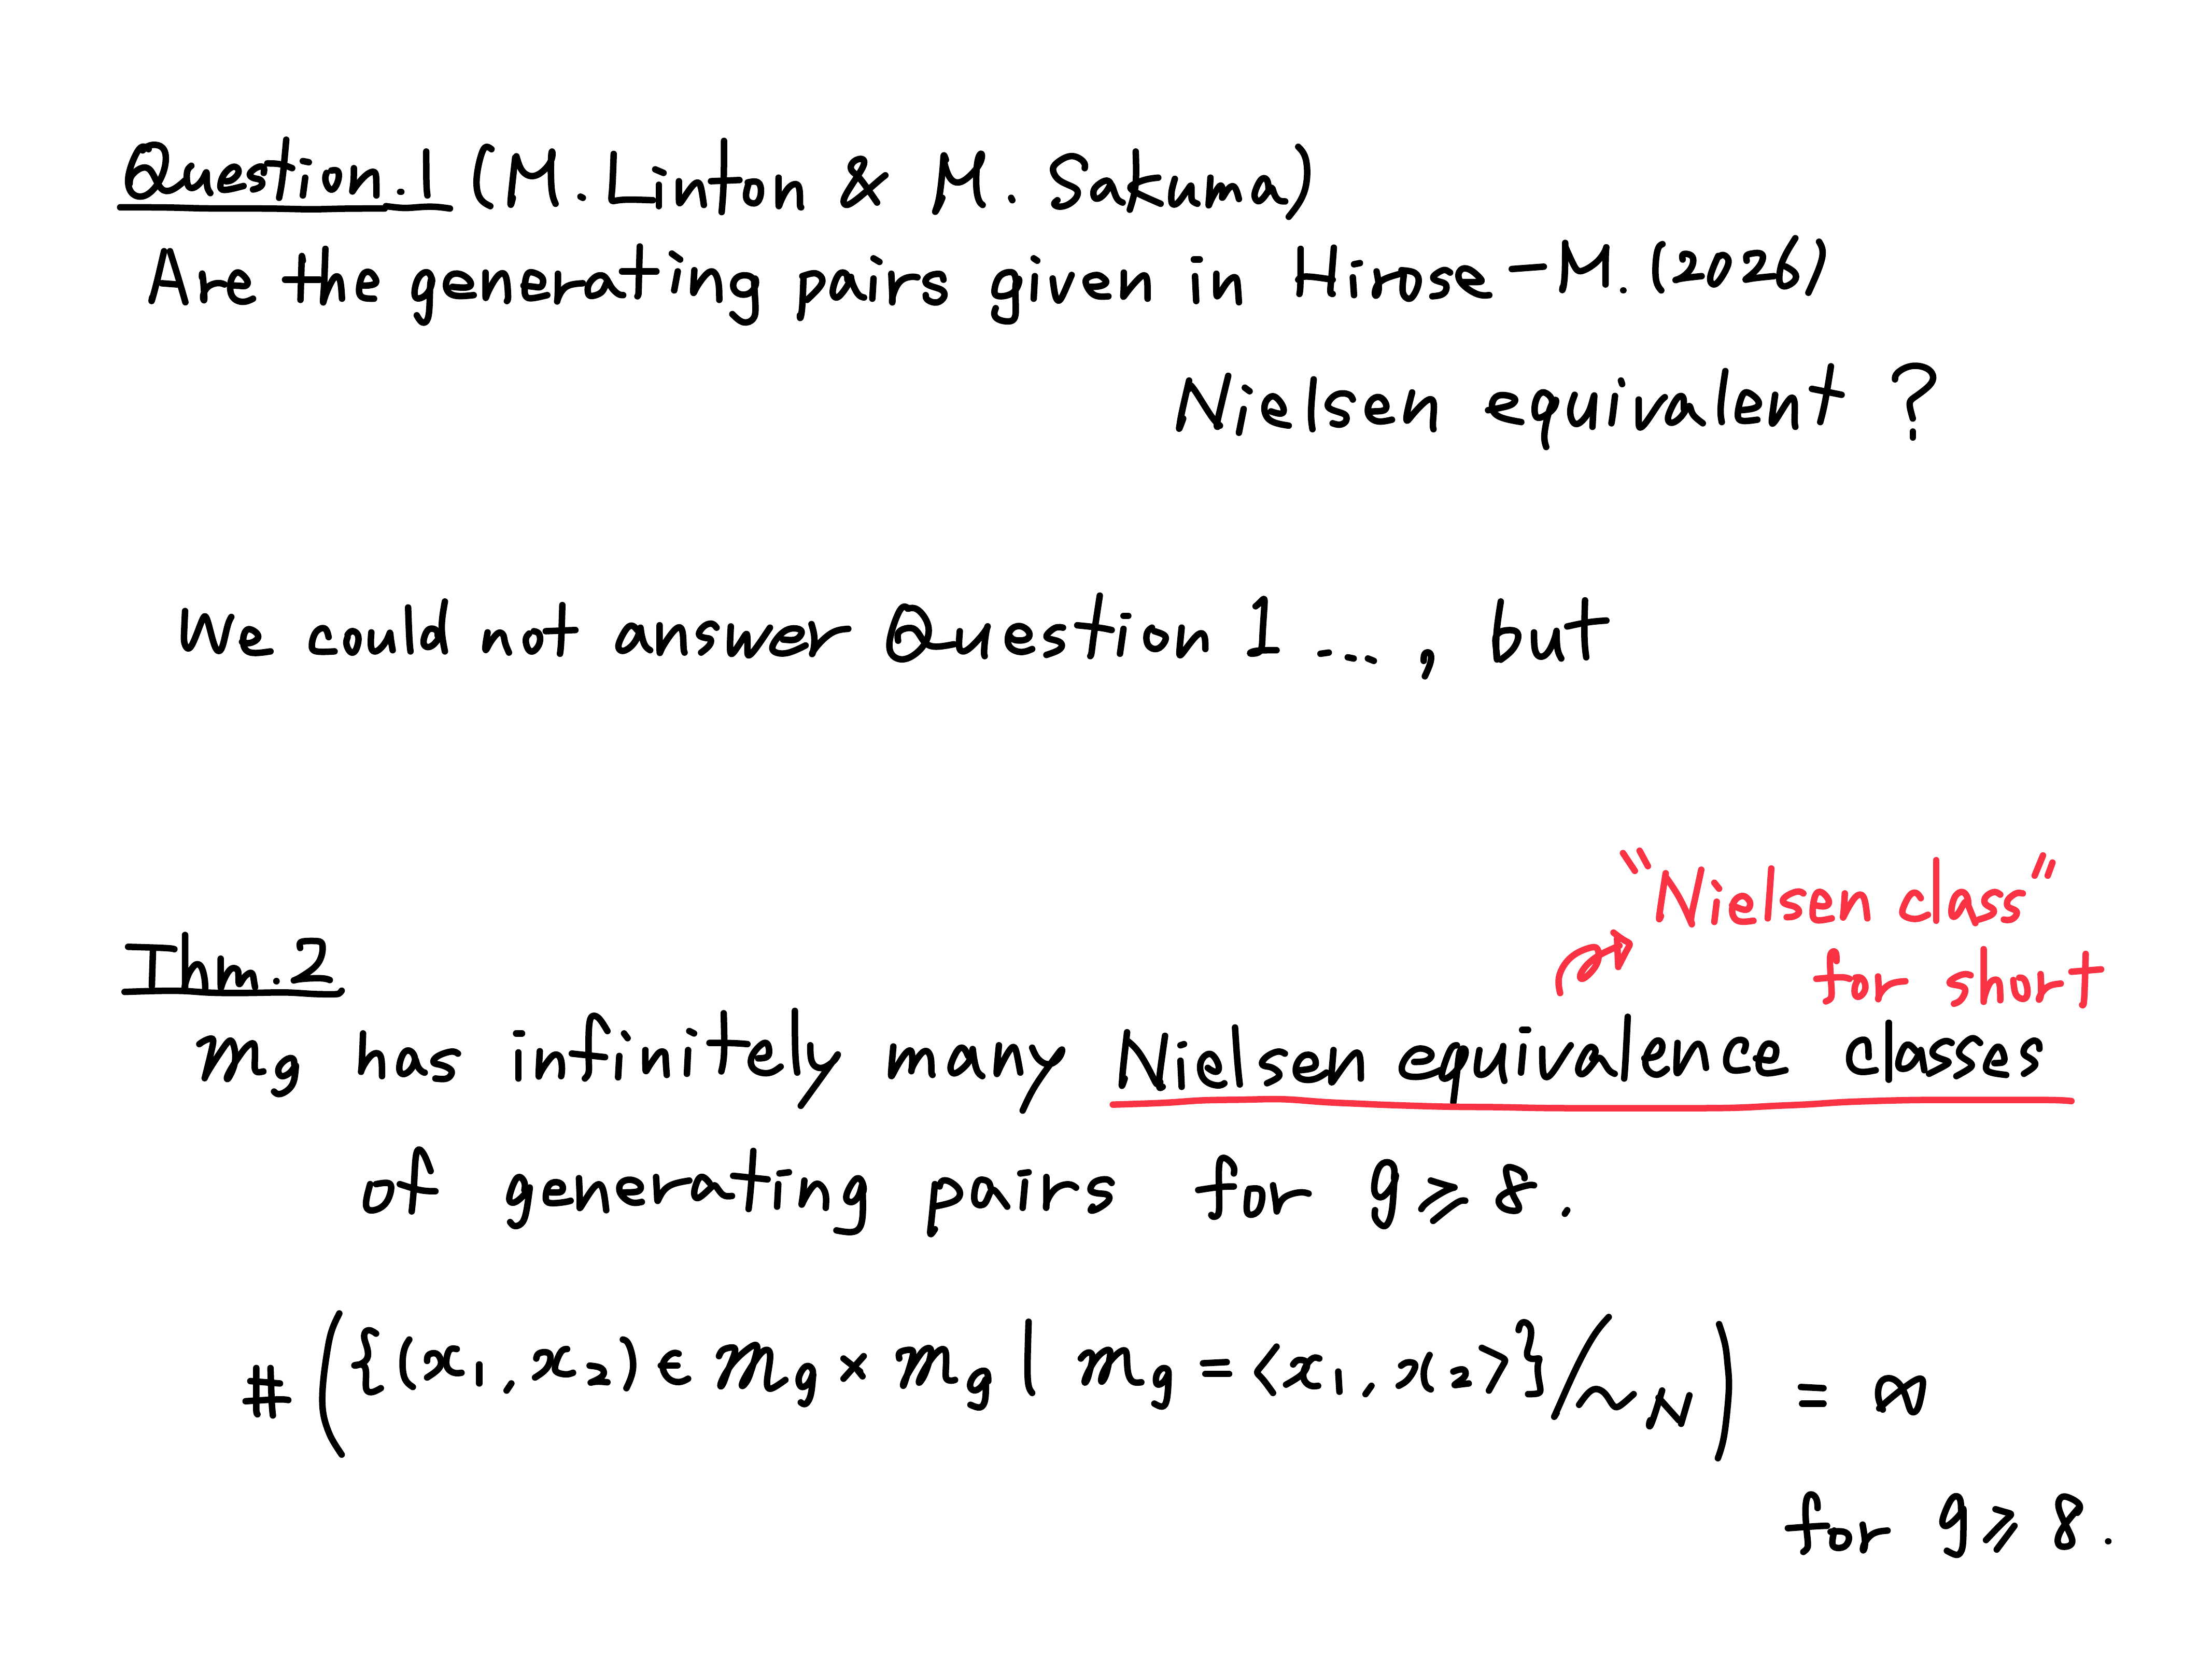 Question.1 (M. Linton & M. Sakuma)
Are the generating pairs given in Hirose-M. (2026)
Nielsen equivalent ?
We could not answer Question 1 ... , but
"Nielsen class"
for short
Thm.2
Mg has infinitely many Nielsen equivalence classes
of generating pairs for g ⩾ 8.
# ( {(x₁, x₂) ∈ Mg × Mg | Mg = <x₁, x₂>} / ~N ) = ∞
for g ⩾ 8.